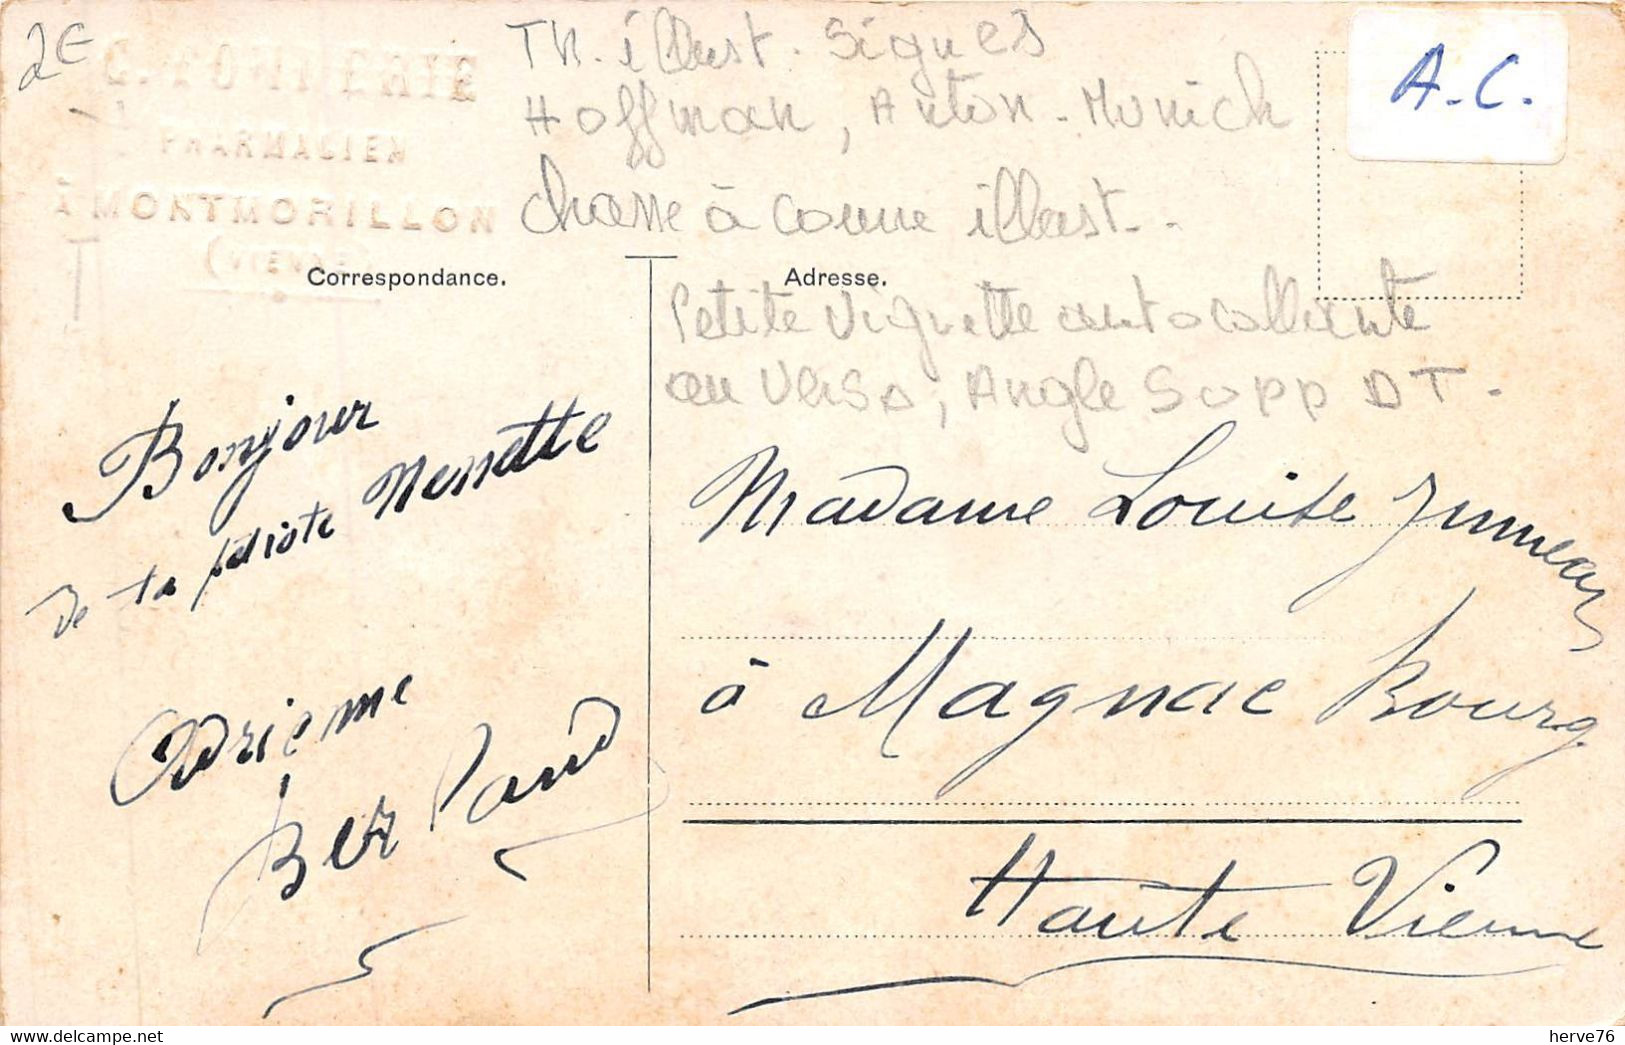 2€
PHARMACIEN
À MONTMORILLON
(VIENNE)
Th. illust. Signés
Hoffman, Anton - Munich
chasse à courre illust. -
Correspondance.
Adresse.
A.-C.
Petite vignette autocollante
au verso, Angle Supp DT -
Bonjour
De ta petiote Nenette
Adrienne
Madame Louise
à Magnac Bourg
Haute Vienne
herve76